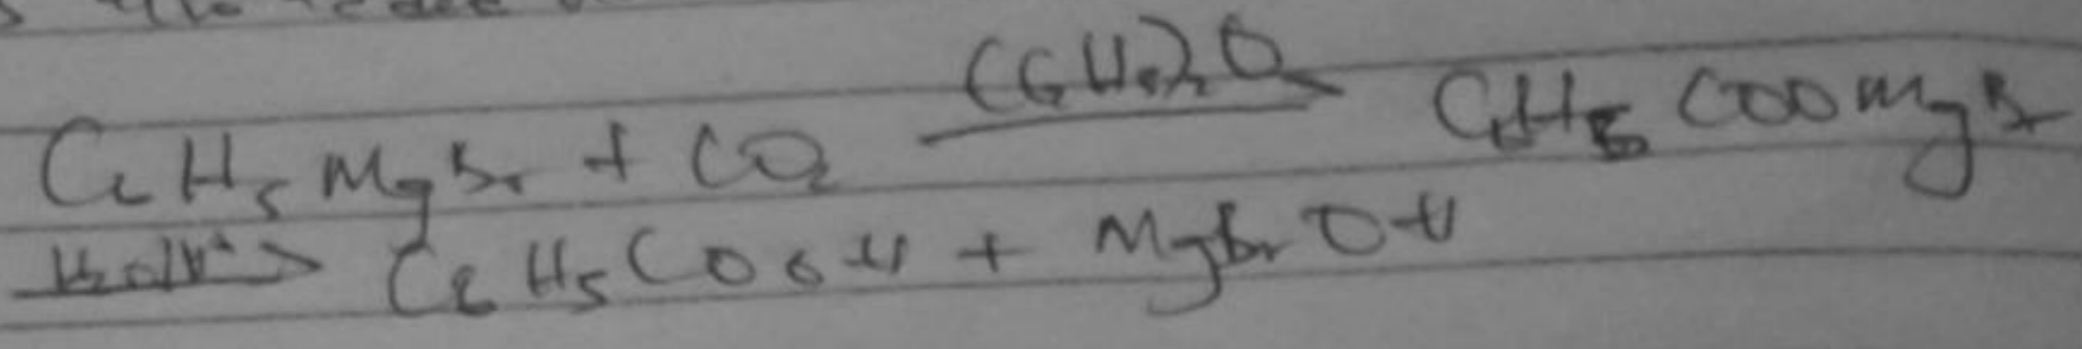 C₆H₅MgBr + CO₂ (C₂H₅)₂O→ C₆H₅COOMgBr
H₂O/H⁺→ C₆H₅COOH + MgBrOH